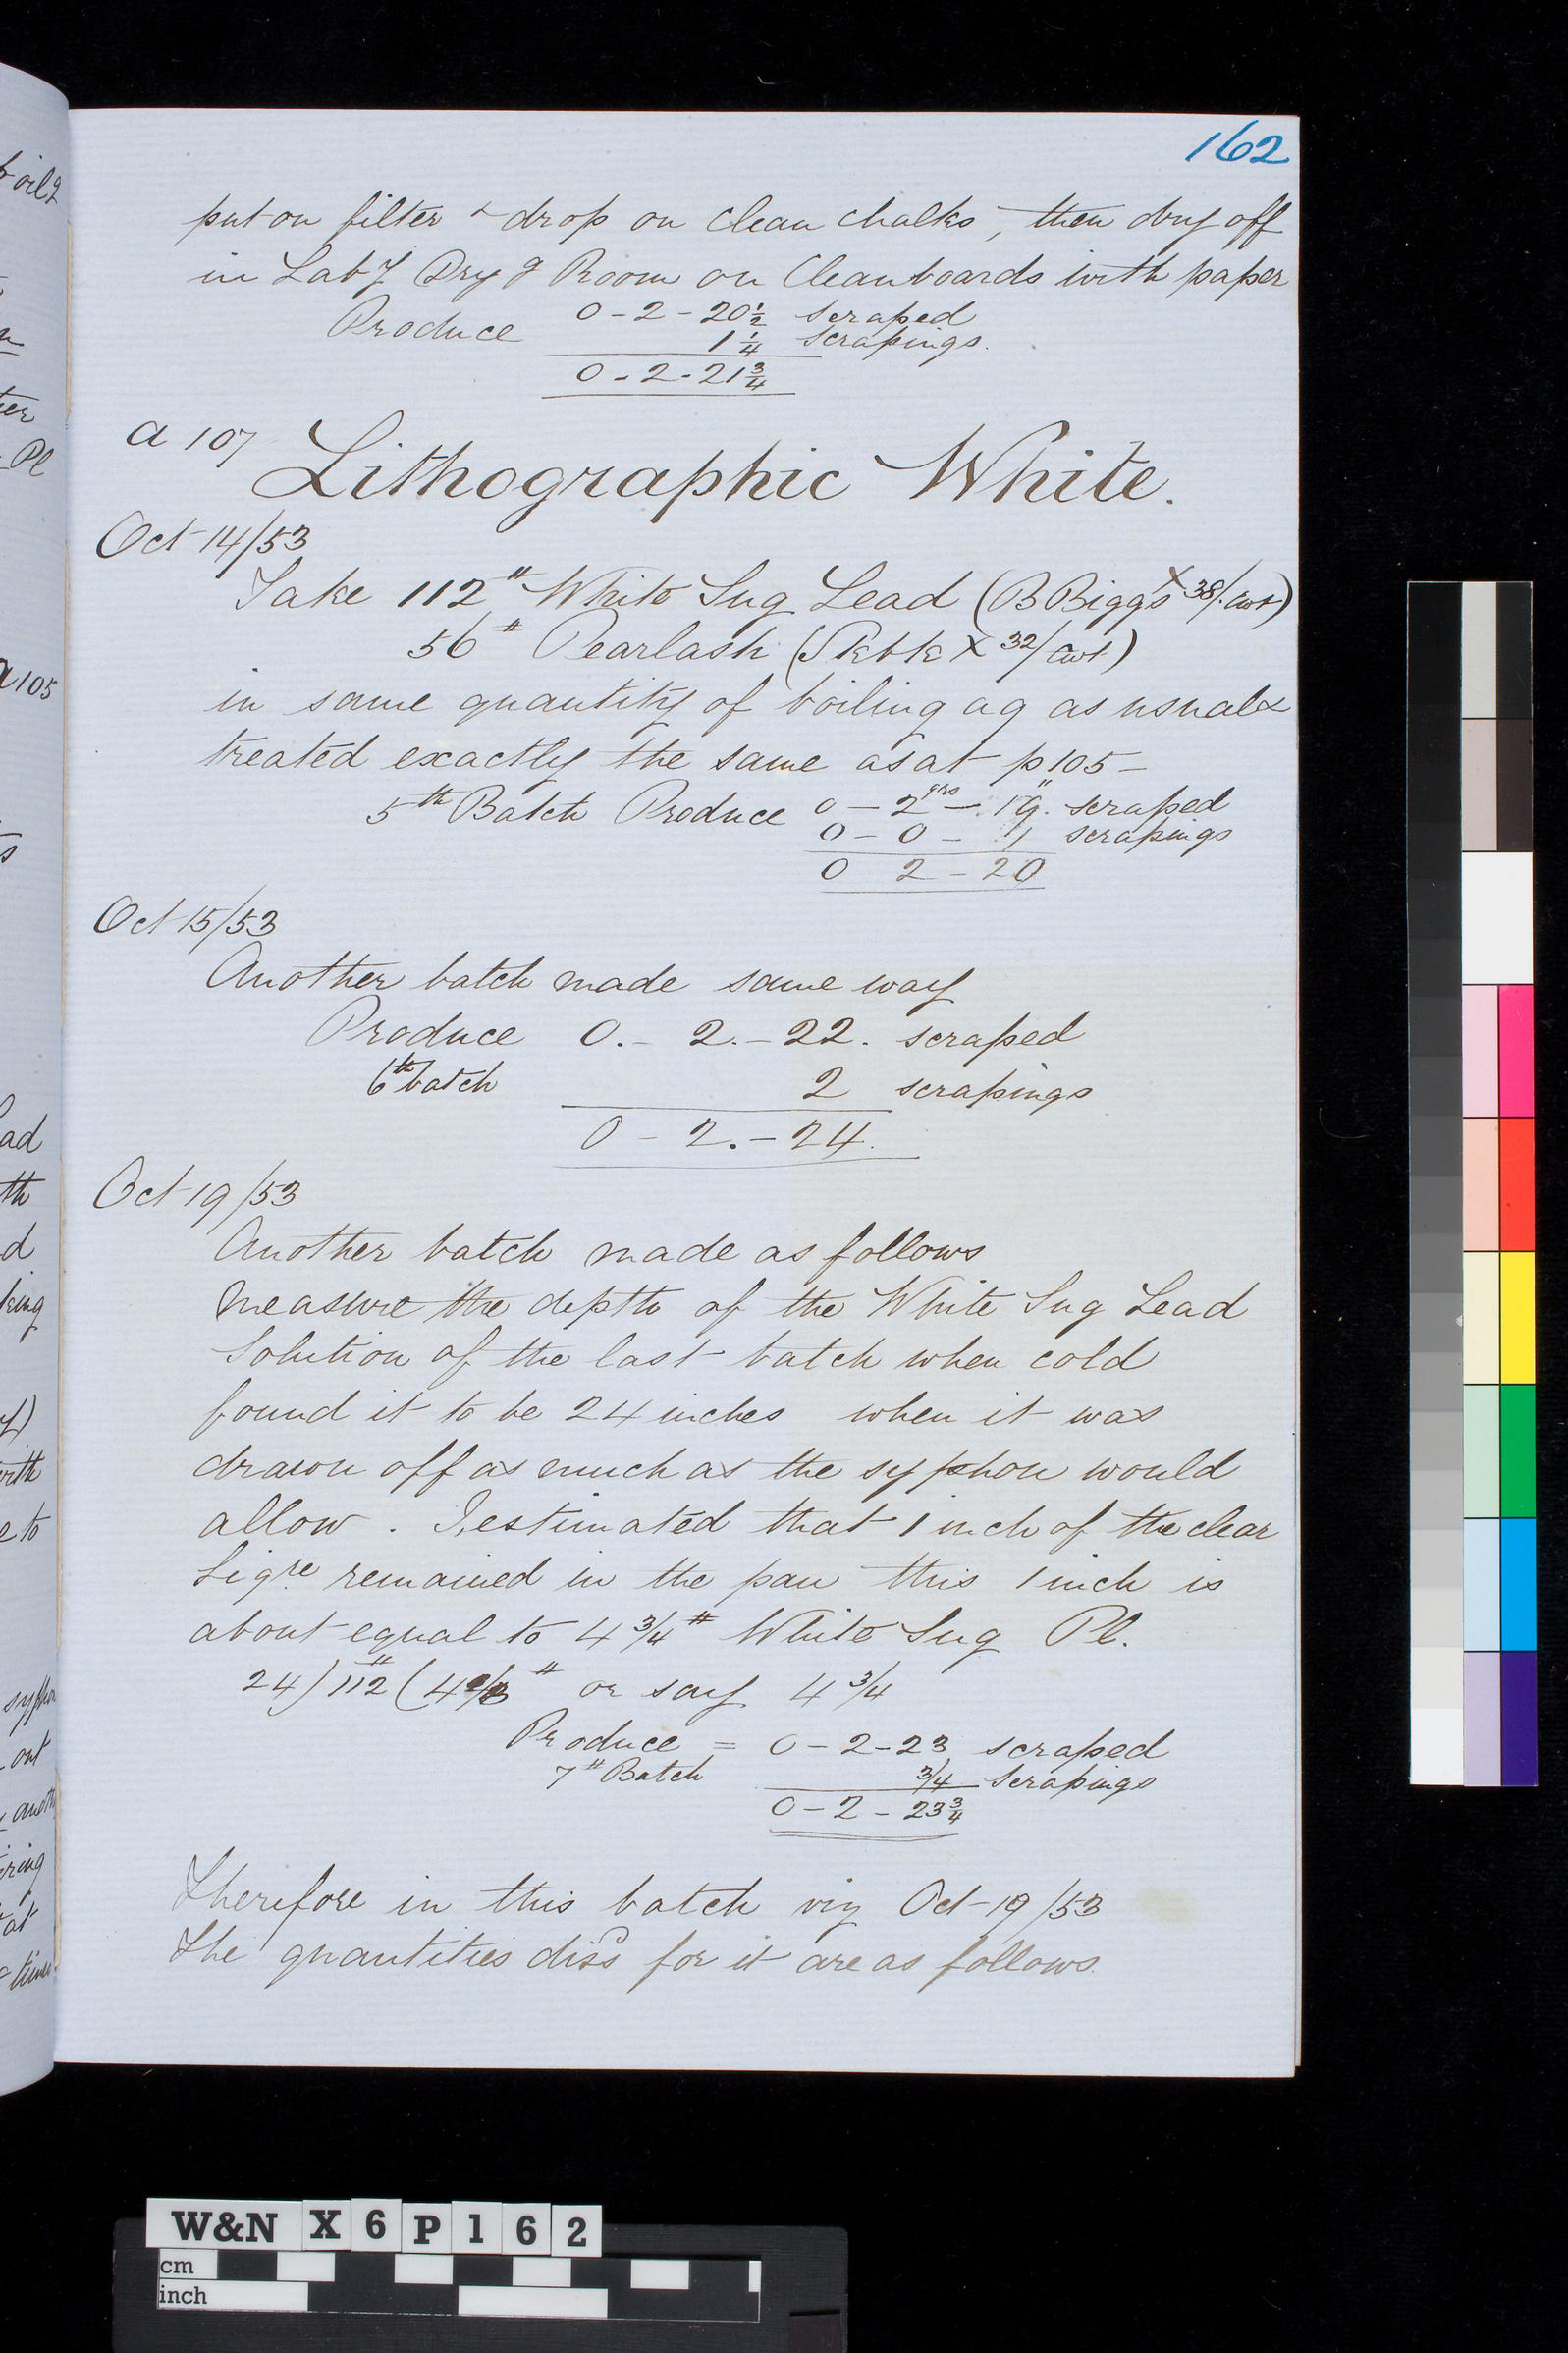 162
put on filter & drop on Clean Chalks, then dry off
in Laby Dryg Room on Clean boards with paper
Produce 0-2-20½ scraped
1¼ scrapings.
0-2-21¾
a 107
Lithographic White.
Oct 14/53
Take 112# White Sug Lead (B Biggs X 38/. Cwt)
56# Pearlash ( X 32/ Cwt)
in same quantity of boiling aq as usual &
treated exactly the same as at p 105 -
5th Batch Produce 0 - 2 qrs - 19" scraped
0 - 0 - 1 scrapings
0 2 - 20
Oct 15/53
Another batch made same way
Produce 0. - 2. - 22. scraped
6th batch 2 scrapings
0 - 2. - 24.
Oct 19/53
Another batch made as follows
Measure the depth of the White Sug Lead
Solution of the last batch when cold
found it to be 24 inches when it was
drawn off as much as the syphon would
allow. I estimated that 1 inch of the clear
Liqre remained in the pan this 1 inch is
about equal to 4 ¾# White Sug Pl.
24) 112# (4 2/3# or say 4 ¾
Produce = 0-2-23 scraped
7th Batch ¾ Scrapings
0-2-23¾
Therefore in this batch viz Oct 19/53
the quantities dissd for it are as follows.
oil g
er
Pl
a 105
ad
th
d
king
with
e to
sypho
out
anoth
ring
at
time
W&N X6P162
cm
inch